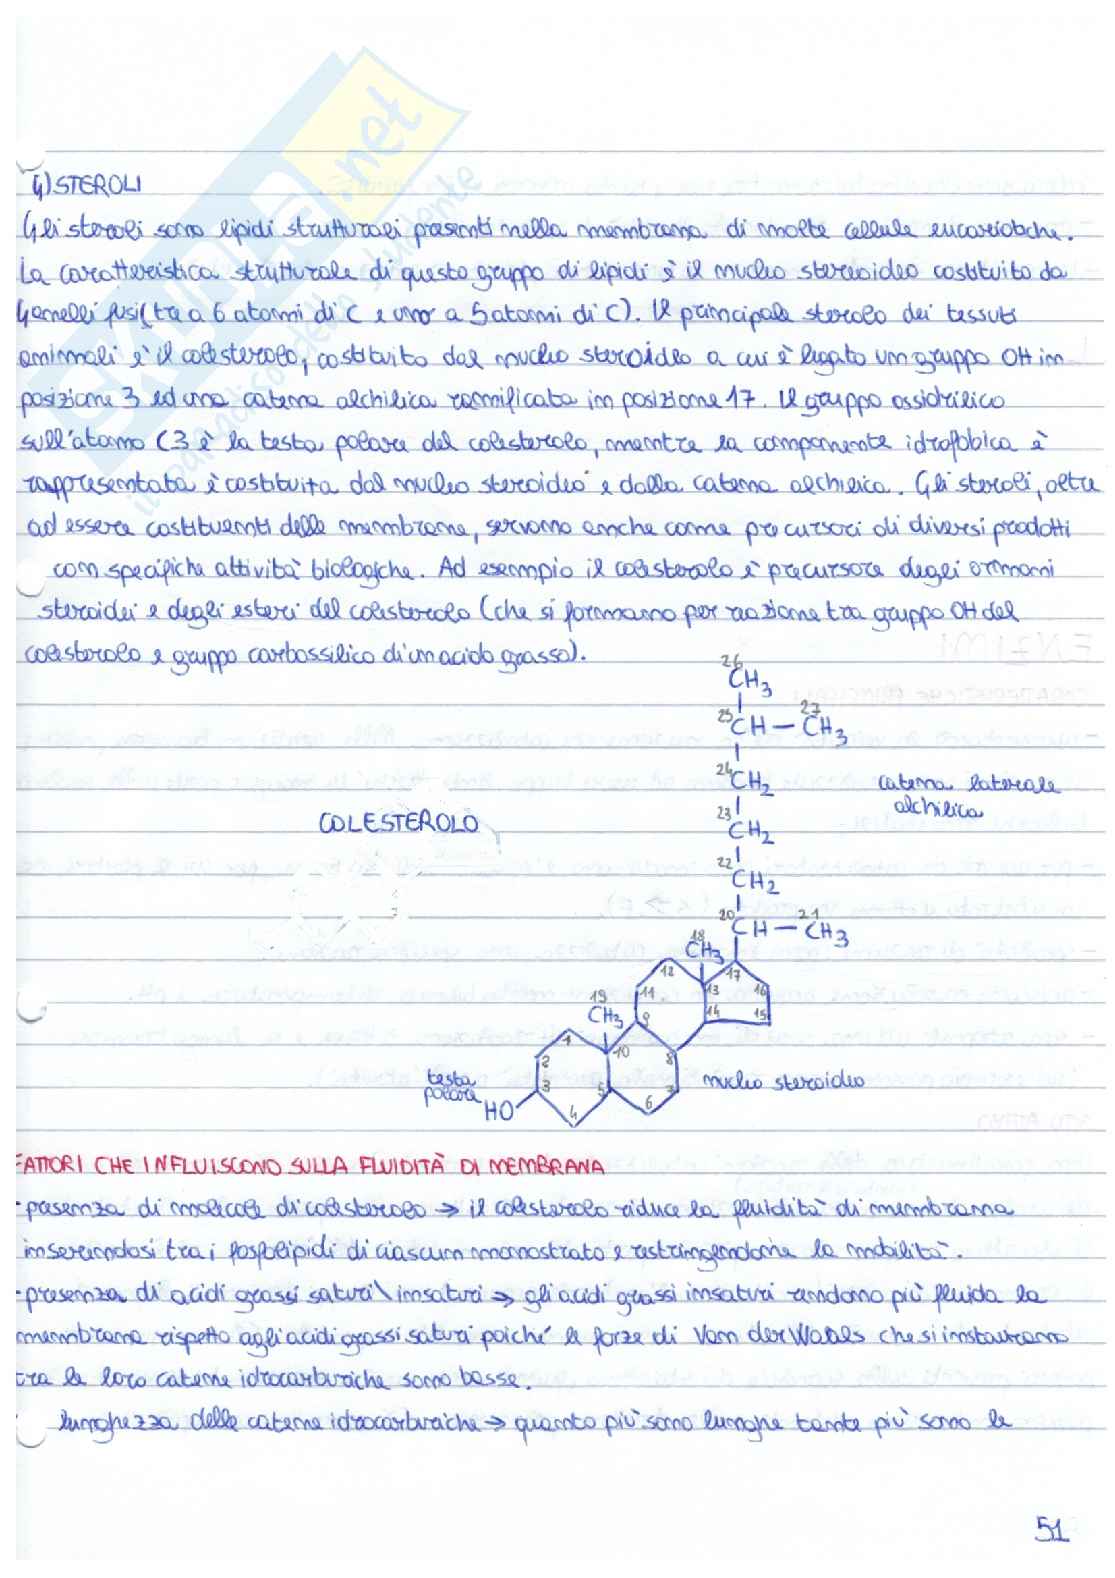 4) STEROLI
Gli steroli sono lipidi strutturali presenti nella membrana di molte cellule eucariotiche.
La caratteristica strutturale di questo gruppo di lipidi è il nucleo stereoideo costituito da
4 anelli fusi (tre a 6 atomi di C e uno a 5 atomi di C). Il principale sterolo dei tessuti
animali è il colesterolo, costituito dal nucleo steroideo a cui è legato un gruppo OH in
posizione 3 ed una catena alchilica ramificata in posizione 17. Il gruppo ossidrilico
sull'atomo C3 è la testa polare del colesterolo, mentre la componente idrofobica è
rappresentata è costituita dal nucleo steroideo e dalla catena alchilica. Gli steroli, oltre
ad essere costituenti delle membrane, servono anche come precursori di diversi prodotti
con specifiche attività biologiche. Ad esempio il colesterolo è precursore degli ormoni
steroidei e degli esteri del colesterolo (che si formano per reazione tra gruppo OH del
colesterolo e gruppo carbossilico di un acido grasso).
26
CH3
25 CH — 27 CH3
24 CH2
catena laterale
alchilica
COLESTEROLO
23 CH2
22 CH2
20 CH — 21 CH3
18 CH3
12 17
11 13 16
19 CH3 9 14 15
1 10
2 8
testa
polare
3 5 7
nucleo steroideo
HO 4 6
FATTORI CHE INFLUISCONO SULLA FLUIDITÀ DI MEMBRANA
- presenza di molecole di colesterolo → il colesterolo riduce la fluidità di membrana
inserendosi tra i fosfolipidi di ciascun monostrato e restringendone la mobilità.
- presenza di acidi grassi saturi\insaturi → gli acidi grassi insaturi rendono più fluida la
membrana rispetto agli acidi grassi saturi poiché le forze di Van der Waals che si instaurano
tra le loro catene idrocarburiche sono basse.
lunghezza delle catene idrocarburiche → quanto più sono lunghe tante più sono le
51
skuola.net